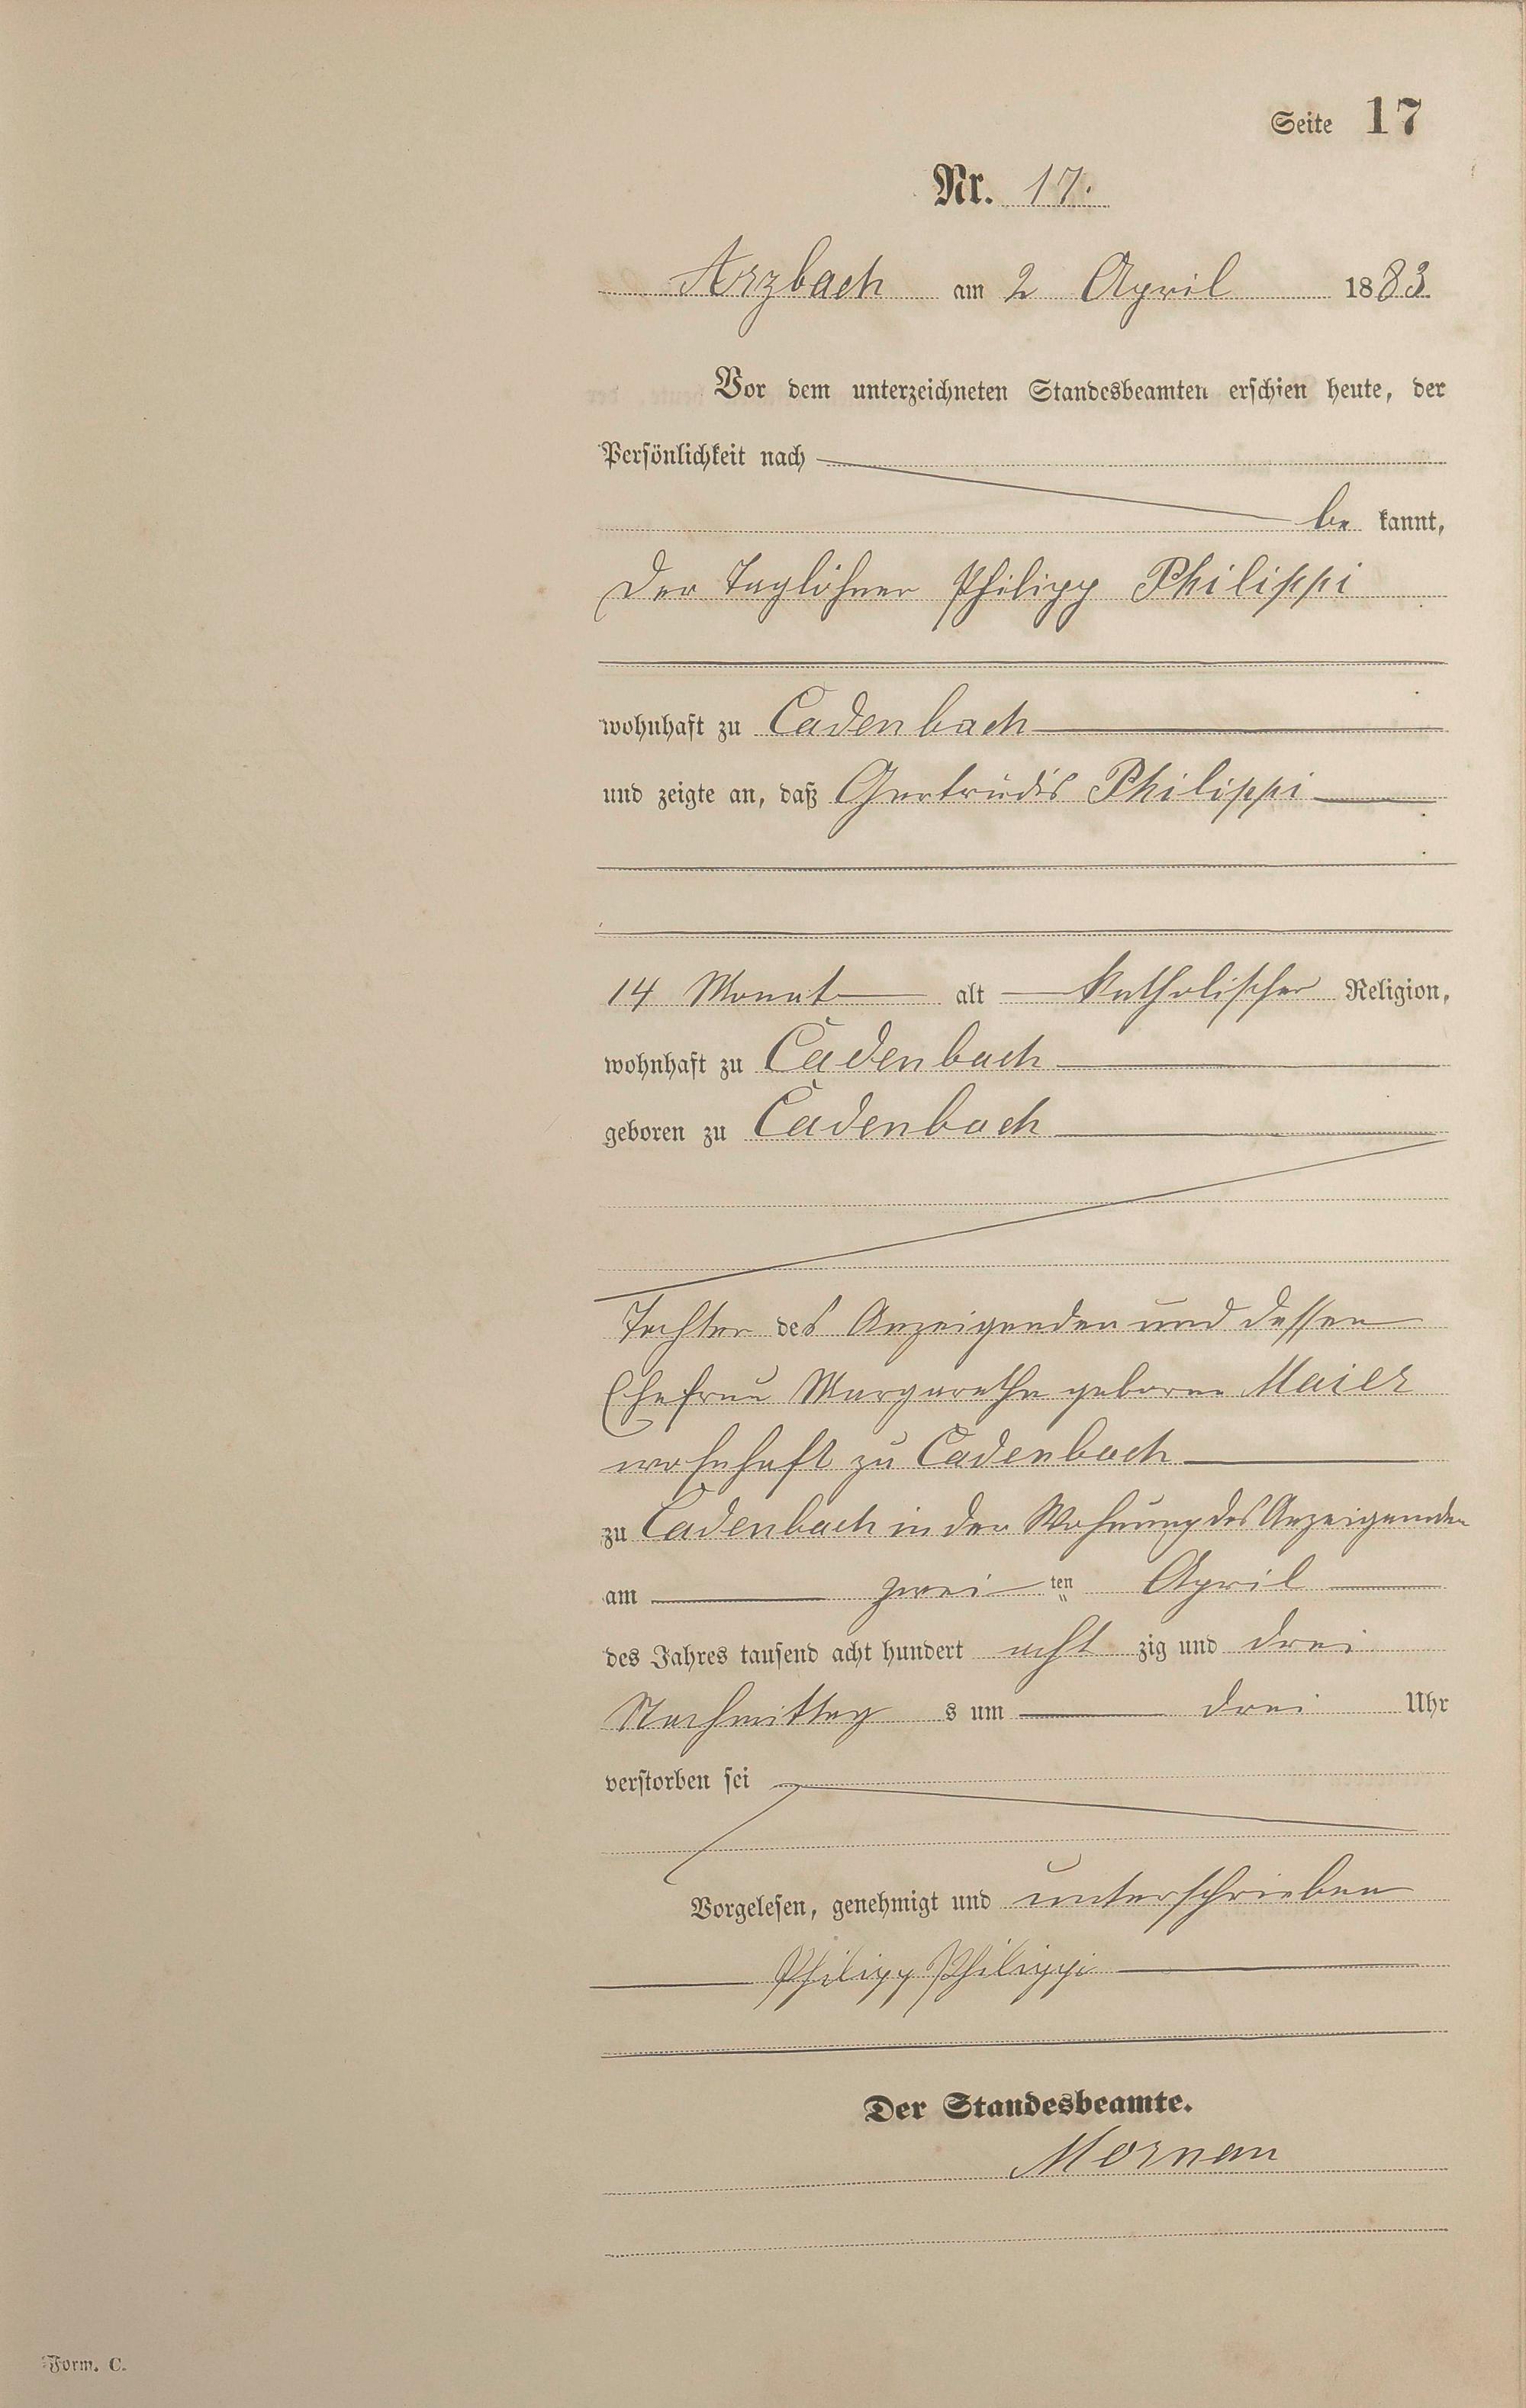 Seite 17
Nr. 17.
Arzbach am 2 April 1883
Vor dem unterzeichneten Standesbeamten erschien heute, der
Persönlichkeit nach
be kannt,
der Taglöhner Philipp Philippi
wohnhaft zu Cadenbach
und zeigte an, daß Gertrudis Philippi
14 Monat alt katholischer Religion,
wohnhaft zu Cadenbach
geboren zu Cadenbach
Tochter des Anzeigenden und dessen
Ehefrau Margarethe geborne Maier
wohnhaft zu Cadenbach
zu Cadenbach in der Wohnung des Anzeigenden
am zwei ten April
des Jahres tausend acht hundert acht zig und drei
Nachmittag s um drei Uhr
verstorben sei
Vorgelesen, genehmigt und unterschrieben
Philipp Philippi
Der Standesbeamte.
Form. C.